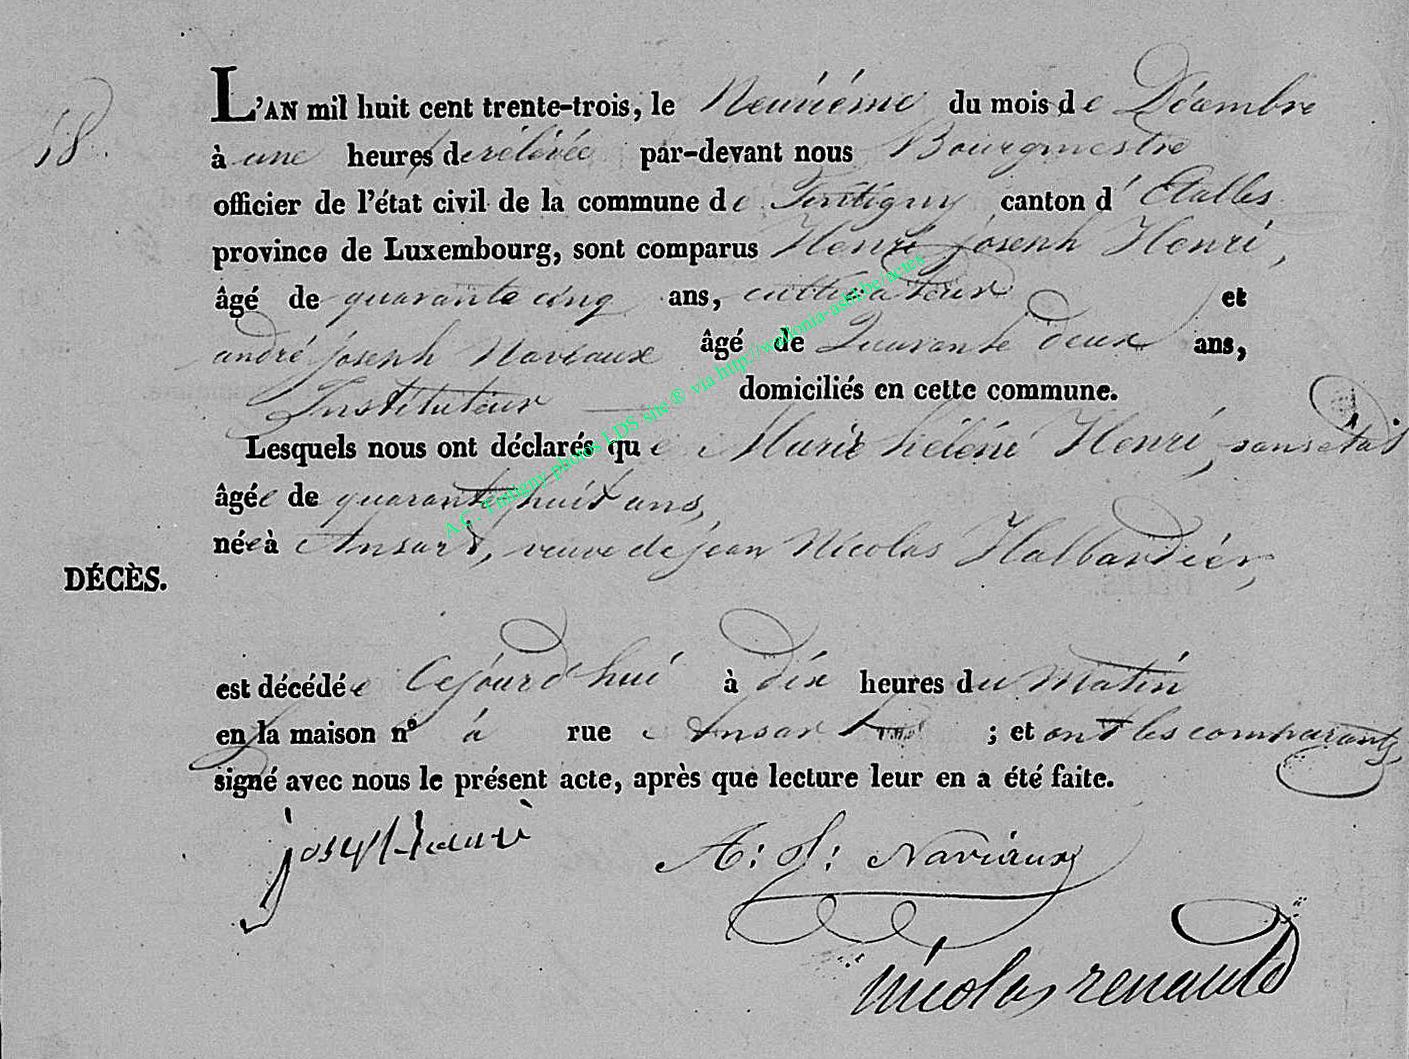 18.
L'AN mil huit cent trente-trois, le Neuviéme du mois de Décembre
à une heures de rélévée par-devant nous Bourgmestre
officier de l'état civil de la commune de Tintigny canton d'Etalles
province de Luxembourg, sont comparus Henri joseph Henri,
âgé de quarante cinq ans, cultivateur et
andré joseph Naviaux âgé de Quarante deux ans,
Instituteur domiciliés en cette commune.
Lesquels nous ont déclarés que Marie héléne Henri, sans état
âgée de quarante huit ans,
née à Ansart, veuve de jean Nicolas Halbardier,
DÉCÈS.
est décédée Cejourd'hui à dix heures du Matin
en la maison n° à rue Ansart ; et ont les comparants
signé avec nous le présent acte, après que lecture leur en a été faite.
joseph henri
A: J: Naviaux
Nicolas renauld
A.C. Tintigny photos LDS site ® via http://wallonia-asbl.be/actes